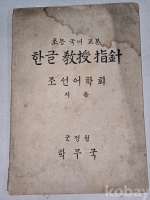 초등 국어 교본
한글 敎授 指針
조선어학회
지음
군정청
학무국
kobay